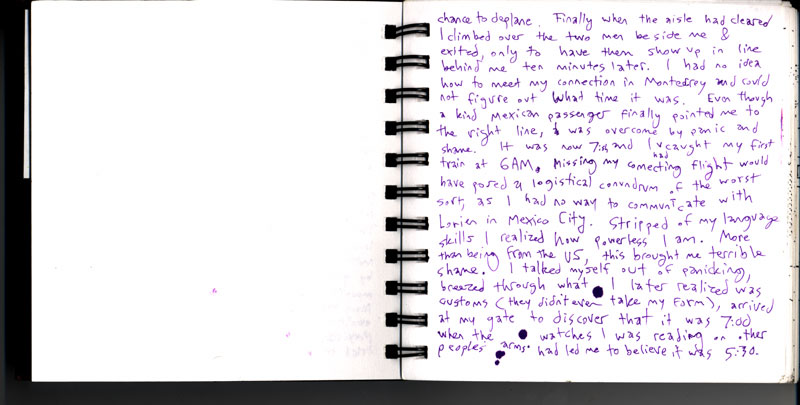 chance to deplane. Finally when the aisle had cleared
I climbed over the two men beside me &
exited, only to have them show up in line
behind me ten minutes later. I had no idea
how to meet my connection in Monterrey and could
not figure out what time it was. Even though
a kind Mexican passenger finally pointed me to
the right line, I was overcome by panic and
shame. It was now 7:15 and I had caught my first
train at 6AM. Missing my connecting flight would
have posed a logistical conundrum of the worst
sort, as I had no way to communicate with
in Mexico City. Stripped of my language
skills I realized how powerless I am. More
than being from the US, this brought me terrible
shame. I talked myself out of panicking,
breezed through what I later realized was
customs (they didn't even take my form), arrived
at my gate to discover that it was 7:00
when the watches I was reading on other
peoples arms had led me to believe it was 5:30.